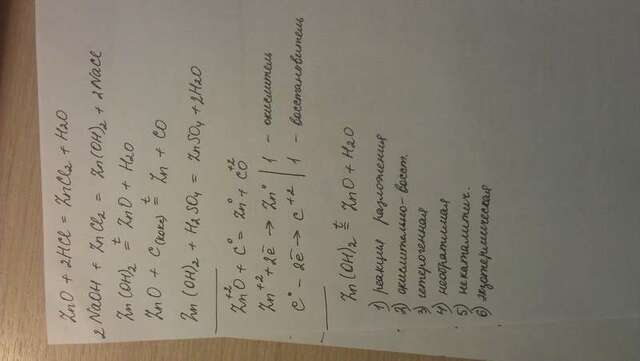 ZnO + 2HCl = ZnCl₂ + H₂O
2NaOH + ZnCl₂ = Zn(OH)₂ + 2NaCl
Zn(OH)₂ =ᵗ ZnO + H₂O
ZnO + C(кокс) =ᵗ Zn + CO
Zn(OH)₂ + H₂SO₄ = ZnSO₄ + 2H₂O
Zn⁺²O + C⁰ = Zn⁰ + C⁺²O
Zn⁺² + 2ē → Zn⁰ | 1 – окислитель
C⁰ – 2ē → C⁺² | 1 – восстановитель
Zn(OH)₂ =ᵗ ZnO + H₂O
1) реакция разложения
2) окислительно-восст.
3) гетерогенная
4) необратимая
5) некаталитич.
6) экзотермическая